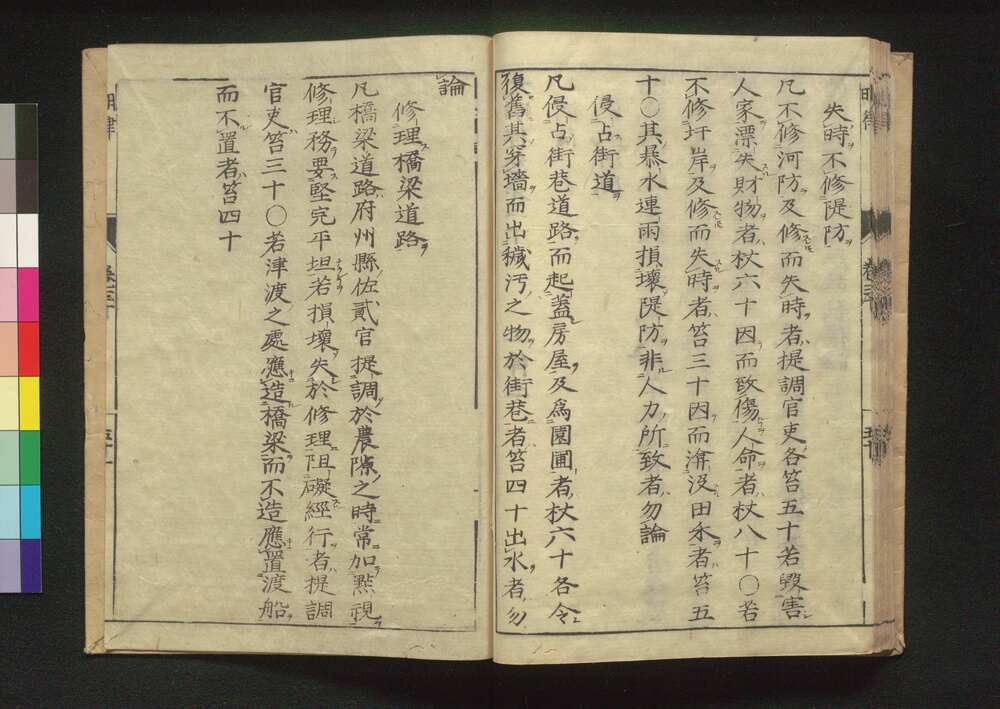 失時不修隄防
凡不修河防及修而失時者提調官吏各笞五十若毀害
人家漂失財物者杖六十因而致傷人命者杖八十〇若
不修圩岸及修而失時者笞三十因而渰没田禾者笞五
十〇其暴水連雨損壞隄防非人力所致者勿論
侵占街道
凡侵占街巷道路而起蓋房屋及為園圃者杖六十各令
復舊其穿墻而出穢汚之物於街巷者笞四十出水者勿
論
修理橋梁道路
凡橋梁道路府州縣佐貳官提調於農隙之時常加點視
修理務要堅完平坦若損壞失於修理阻礙經行者提調
官吏笞三十〇若津渡之處應造橋梁而不造應置渡船
而不置者笞四十
明律